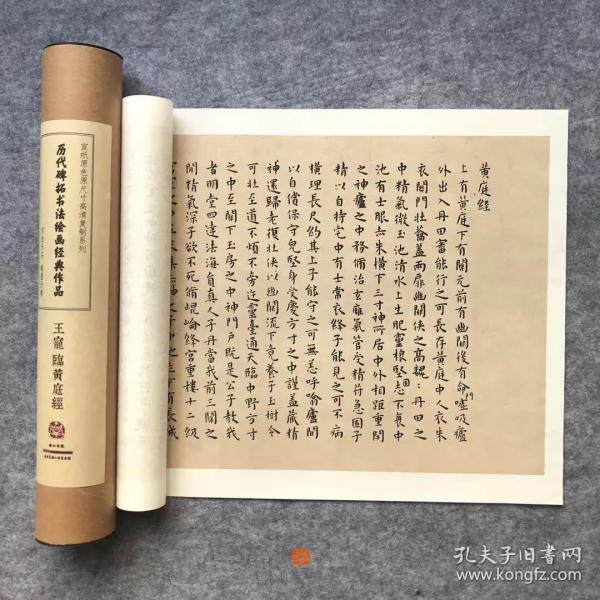 黄庭經
上有黄庭下有關元前有幽闕後有命嘘吸廬
門
外出入丹田審能行之可長存黄庭中人衣朱
衣關門壯蘥盖兩扉幽關俠之髙巍丹田之
中精氣微玉池清水上生肥靈根堅志不衰中
池有士服赤朱横下三寸神所居中外相距重閇
之神廬之中務脩治玄廱氣管受精符急固子
精以自持宅中有士常衣絳子能見之可不病
横理長尺約其上子能守之可無恙呼噏廬間
以自償保守皃堅身受慶方寸之中謹盖藏精
神還歸老復壯俠以幽闕流下竟養子玉樹令
可壯至道不煩不旁迕靈臺通天臨中野方寸
之中至關下玉房之中神門户既是公子教我
者明堂四達法海負真人子丹當我前三關之
間精氣深子欲不死脩崐崘絳宫重樓十二級
宣纸原色原尺寸高清复制系列
历代碑拓书法绘画经典作品
王寵臨黄庭經
孔夫子旧书网
www.kongfz.com